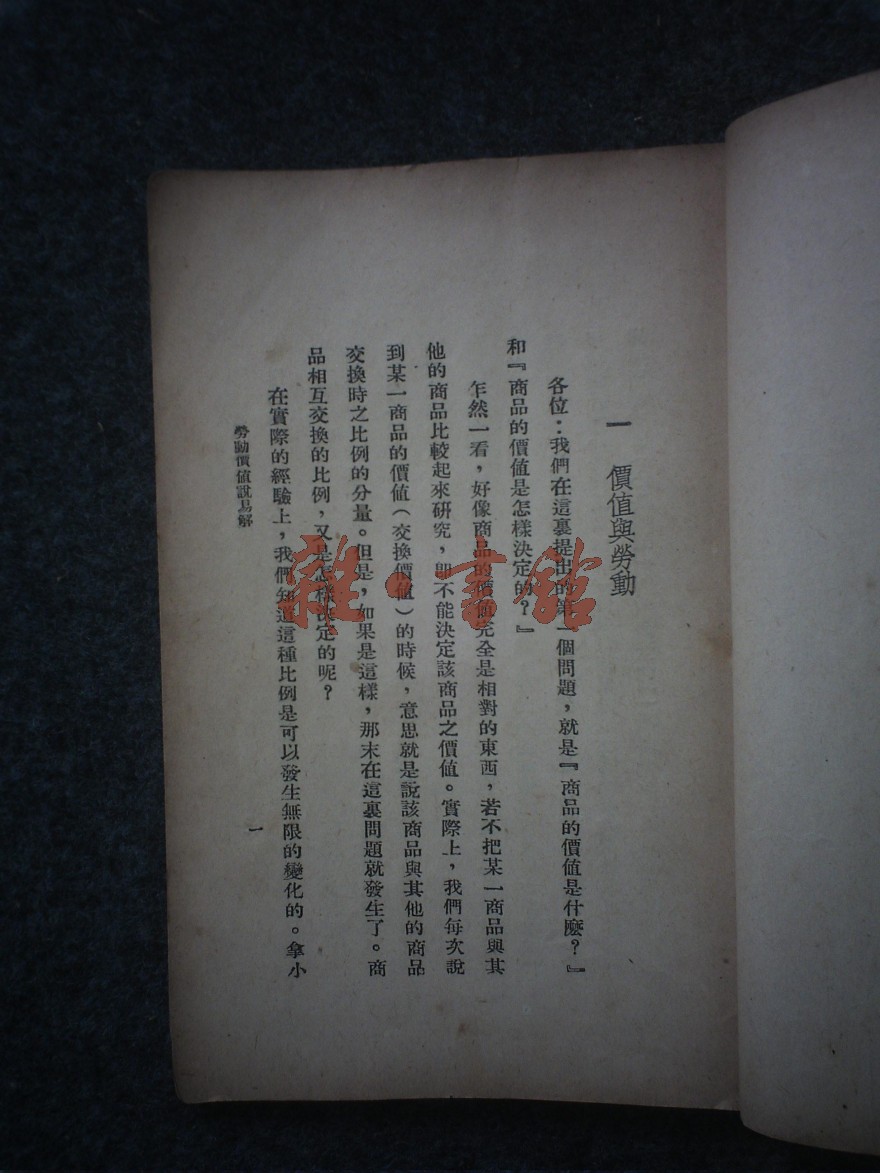 一　價值與勞動
各位：我們在這裏提出的第一個問題，就是『商品的價值是什麽？』
和『商品的價值是怎樣決定的？』
乍然一看，好像商品的價值完全是相對的東西，若不把某一商品與其
他的商品比較起來研究，卽不能決定該商品之價値。實際上，我們每次說
到某一商品的價值（交換價值）的時候，意思就是說該商品與其他的商品
交換時之比例的分量。但是，如果是這樣，那末在這裏問題就發生了。商
品相互交換的比例，又是怎樣決定的呢？
在實際的經驗上，我們知道這種比例是可以發生無限的變化的。拿小
勞動價值說易解
一
雜·書館